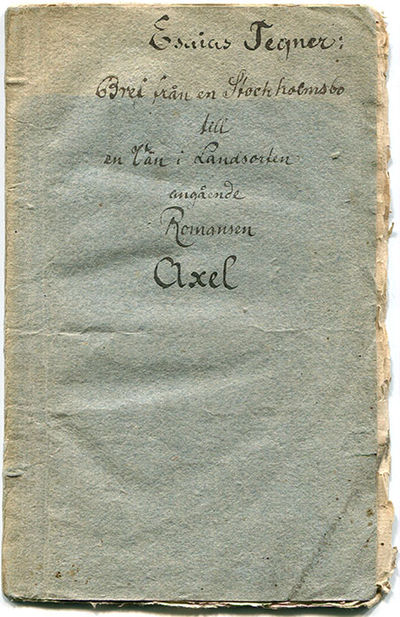 Esaias Tegner:
Bref från en Stockholmsbo
till
en Vän i Landsorten
angående
Romansen
Axel